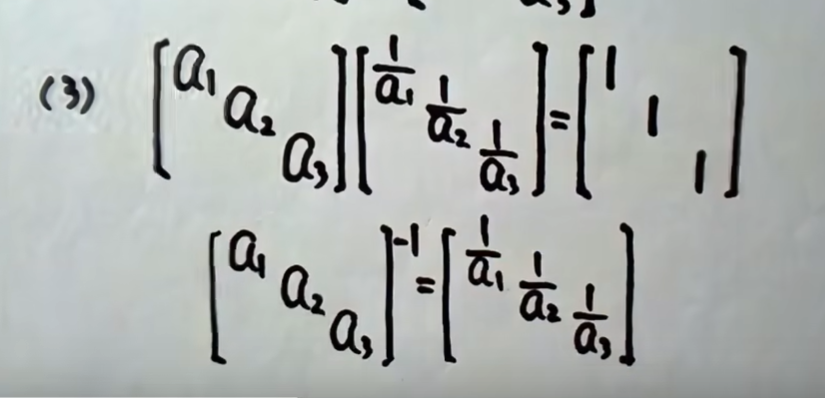 a₃]
(3) [a₁ a₂ a₃][1/a₁ 1/a₂ 1/a₃]=[1 1 1]
[a₁ a₂ a₃]⁻¹=[1/a₁ 1/a₂ 1/a₃]